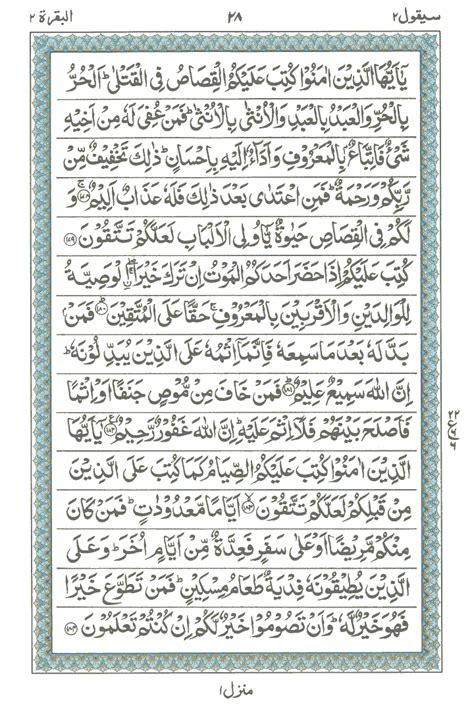 سيقول ٢ ٢٨ البقرة ٢
يٰۤاَيُّهَا الَّذِيْنَ اٰمَنُوْا كُتِبَ عَلَيْكُمُ الْقِصَاصُ فِي الْقَتْلٰىؕ اَلْحُرُّ
بِالْحُرِّ وَالْعَبْدُ بِالْعَبْدِ وَالْاُنْثٰى بِالْاُنْثٰىؕ فَمَنْ عُفِيَ لَهٗ مِنْ اَخِيْهِ
شَيْءٌ فَاتِّبَاعٌۢ بِالْمَعْرُوْفِ وَاَدَآءٌ اِلَيْهِ بِاِحْسَانٍؕ ذٰلِكَ تَخْفِيْفٌ مِّنْ
رَّبِّكُمْ وَرَحْمَةٌؕ فَمَنِ اعْتَدٰى بَعْدَ ذٰلِكَ فَلَهٗ عَذَابٌ اَلِيْمٌ ﴿١٧٨﴾ وَ
لَكُمْ فِي الْقِصَاصِ حَيٰوةٌ يّٰۤاُولِي الْاَلْبَابِ لَعَلَّكُمْ تَتَّقُوْنَ ﴿١٧٩﴾
كُتِبَ عَلَيْكُمْ اِذَا حَضَرَ اَحَدَكُمُ الْمَوْتُ اِنْ تَرَكَ خَيْرَاۖۚ ۨالْوَصِيَّةُ
لِلْوَالِدَيْنِ وَالْاَقْرَبِيْنَ بِالْمَعْرُوْفِۚ حَقًّا عَلَى الْمُتَّقِيْنَؕ ﴿١٨٠﴾ فَمَنْۢ
بَدَّلَهٗ بَعْدَ مَا سَمِعَهٗ فَاِنَّمَاۤ اِثْمُهٗ عَلَى الَّذِيْنَ يُبَدِّلُوْنَهٗؕ
اِنَّ اللّٰهَ سَمِيْعٌ عَلِيْمٌؕ ﴿١٨١﴾ فَمَنْ خَافَ مِنْ مُّوْصٍ جَنَفًا اَوْ اِثْمًا
فَاَصْلَحَ بَيْنَهُمْ فَلَاۤ اِثْمَ عَلَيْهِؕ اِنَّ اللّٰهَ غَفُوْرٌ رَّحِيْمٌ ﴿١٨٢﴾ يٰۤاَيُّهَا
الَّذِيْنَ اٰمَنُوْا كُتِبَ عَلَيْكُمُ الصِّيَامُ كَمَا كُتِبَ عَلَى الَّذِيْنَ
مِنْ قَبْلِكُمْ لَعَلَّكُمْ تَتَّقُوْنَۙ ﴿١٨٣﴾ اَيَّامًا مَّعْدُوْدٰتٍؕ فَمَنْ كَانَ
مِنْكُمْ مَّرِيْضًا اَوْ عَلٰى سَفَرٍ فَعِدَّةٌ مِّنْ اَيَّامٍ اُخَرَؕ وَعَلَى
الَّذِيْنَ يُطِيْقُوْنَهٗ فِدْيَةٌ طَعَامُ مِسْكِيْنٍؕ فَمَنْ تَطَوَّعَ خَيْرًا
فَهُوَ خَيْرٌ لَّهٗؕ وَاَنْ تَصُوْمُوْا خَيْرٌ لَّكُمْ اِنْ كُنْتُمْ تَعْلَمُوْنَ ﴿١٨٤﴾
منزل ١